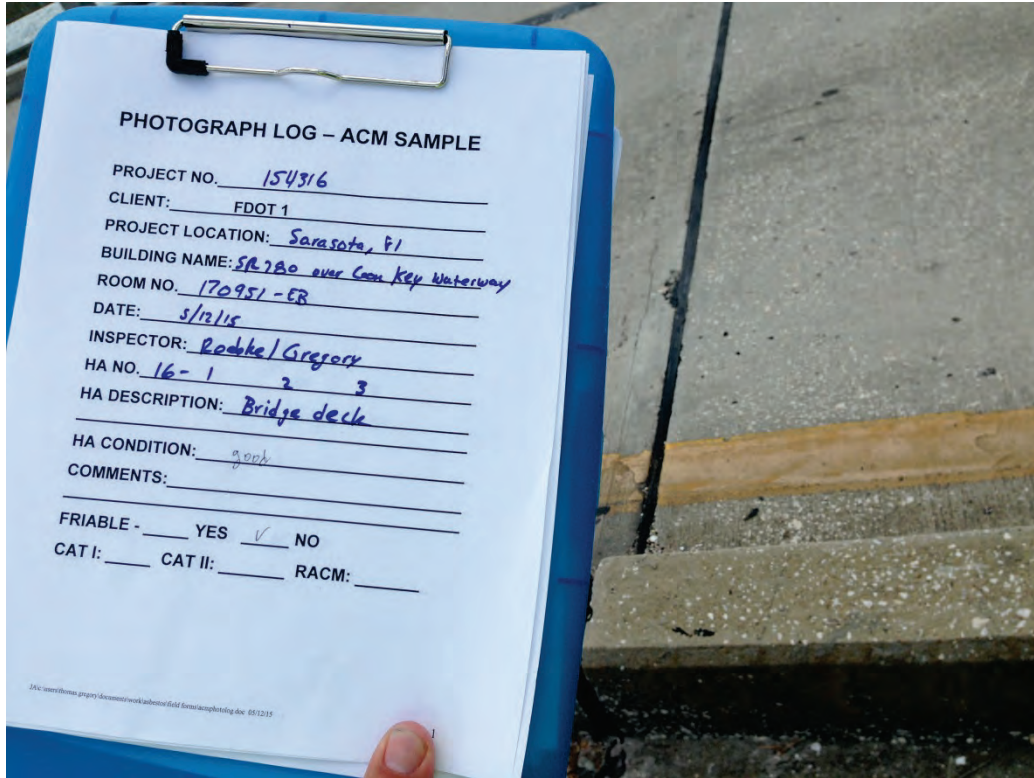 PHOTOGRAPH LOG – ACM SAMPLE
PROJECT NO. 154316
CLIENT: FDOT 1
PROJECT LOCATION: Sarasota, Fl
BUILDING NAME: SR 780 over Coon Key Waterway
ROOM NO. 170951-EB
DATE: 5/12/15
INSPECTOR: Roebke/Gregory
HA NO. 16- 1 2 3
HA DESCRIPTION: Bridge deck
HA CONDITION: good
COMMENTS:
FRIABLE - YES ✓ NO
CAT I: CAT II: RACM:
users\thomas.gregory\documents\work\asbestos\field forms\acmphotolog.doc 05/12/15
1